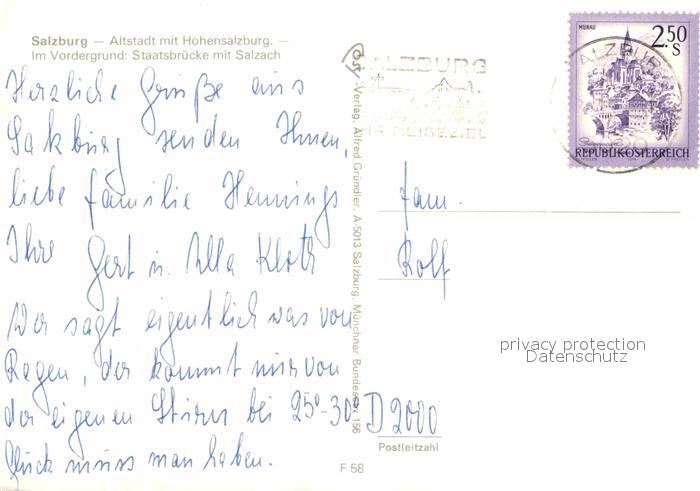 Salzburg — Altstadt mit Hohensalzburg. —
Im Vordergrund: Staatsbrücke mit Salzach
Herzliche Grüße aus
Salzburg senden Ihnen,
liebe Familie Hennings
Ihre Gert u. Ulla Kloth
Wer sagt eigentlich was von
Regen, der kommt nur von
der eigenen Stirn bei 25°-30°
Glück muss man haben.
F 58
Verlag Alfred Gründler, A-5013 Salzburg, Münchner Bundesstr. 156
SALZBURG
IHR REISEZIEL
MURAU
2.50
S
SALZBURG
REPUBLIK ÖSTERREICH
Fam.
Rolf
privacy protection
Datenschutz
D 2000
Postleitzahl